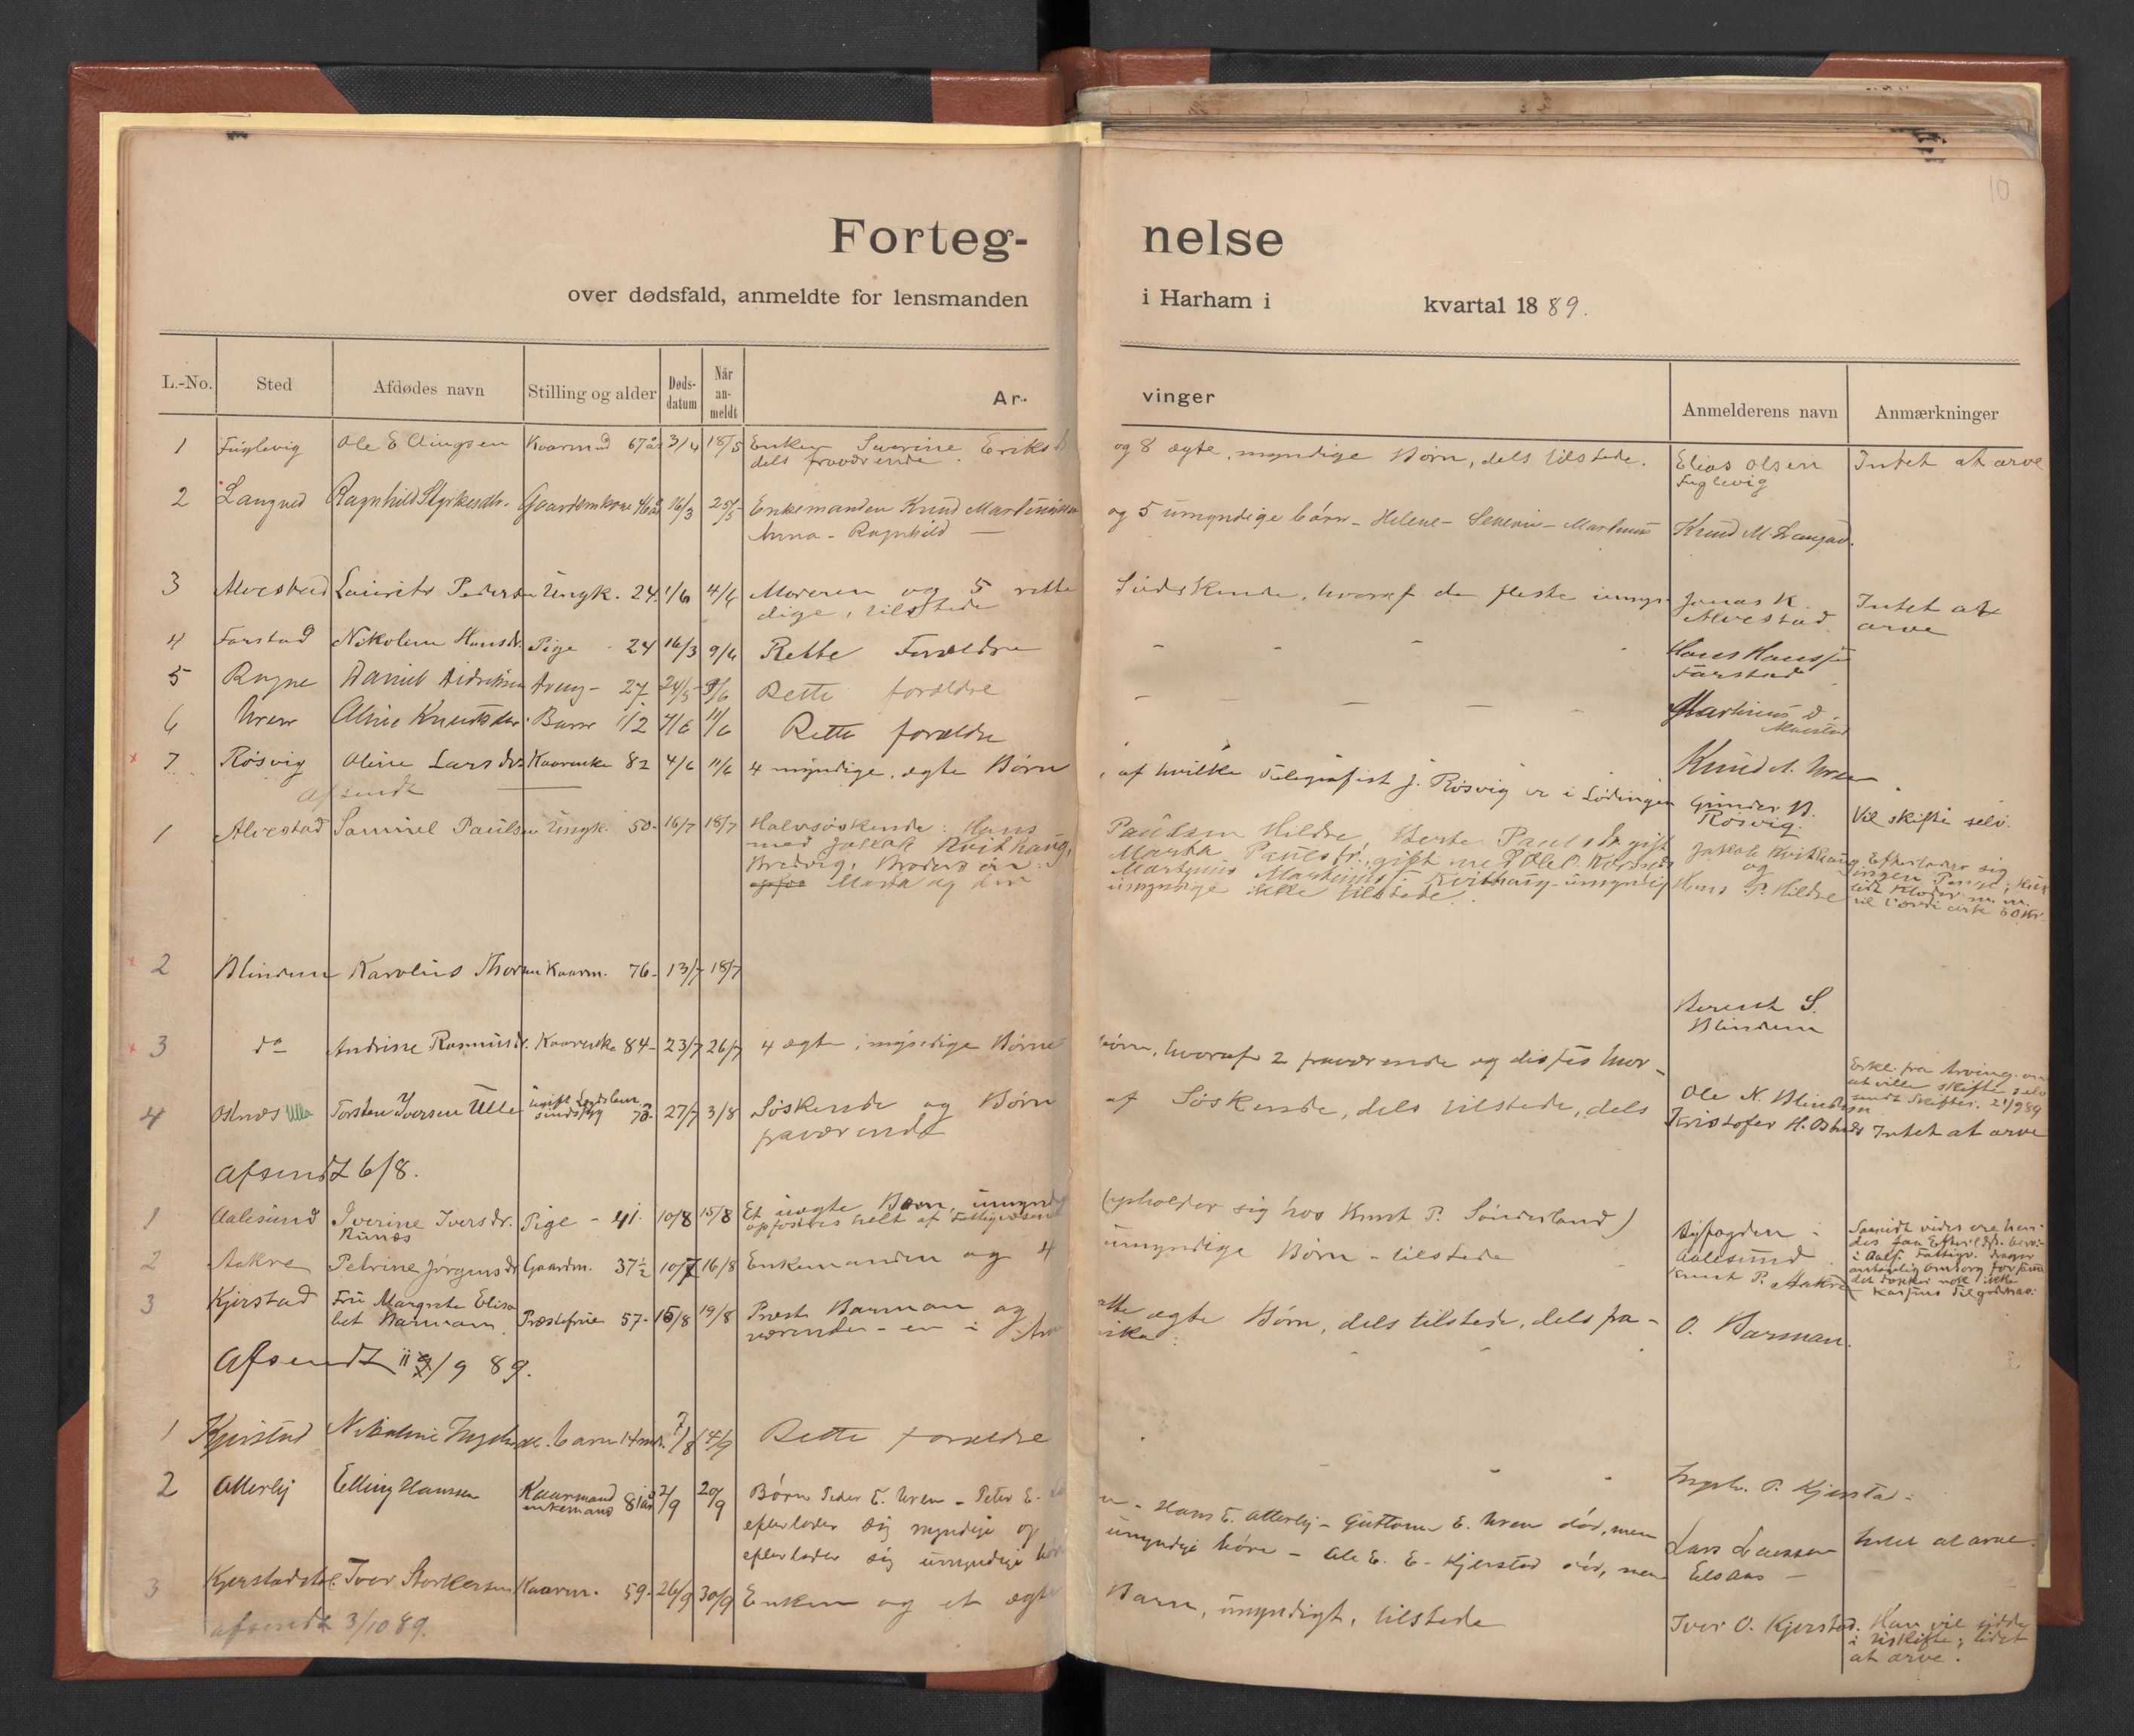 10
Forteg- nelse
over dødsfald, anmeldte for lensmanden i Harham i kvartal 1889.
L.-No. Sted Afdødes navn Stilling og alder Døds-datum Når an-meldt Ar- vinger Anmelderens navn Anmærkninger
1 Fuglevig Ole Ellingsen Kaarmd 67 år 3/4 18/5 Enken Severine Eriksd og 8 ægte, myndige Børn, dels tilstede. Elias Olsen Intet at arve
dels fraværende. Fuglevig
2 Langned Ragnhild Styrkesdtr. Gaardmkone 46 år 16/3 25/5 Enkemanden Knud Martinussen og 5 umyndige børn - Helene - Severin - Martinus Knud M. Langned.
Anna - Ragnhild —
3 Alvestad Laurits Pedersen Ungk. 24. 1/6 4/6 Moderen og 5 rette Sødskende, hvoraf de fleste umyn- Jonas K. Intet at
dige, tilstede Alvestad arve
4 Farstad Nikoline Hansdr. Pige - 24 16/3 9/6 Rette Forældre Hans Hanssen
Farstad
5 Rogne Daniel Didriksen Dreng - 27 24/5 9/6 Rette forældre Martinus D.
Alvestad
6 Uren Aline Knutsdtr. Barn 1/2 7/6 11/6 Rette forældre Knud A. Uren
7 Røsvig Oline Larsdtr Kaarenke 82 4/6 11/6 4 myndige, ægte Børn, af hvilke Telegrafist J. Røsvig er i Lødingen Gunder N. Vil skifte selv.
Afsendt Røsvig.
1 Alvestad Samuel Paulsen Ungk. 50- 16/7 18/7 Halvsøskende: Hans Paulsen Hildre, Berte Paulsdr. gift Jakob Kvithaug Efterlader sig
med Jakob Kvithaug, Marta Paulsdr., gift med Ole O. og ingen Penge; kun
Bredvig, Brodersøn: Martinus Martinus Kvithaug - umyndig Hans P. Hildre lidt Klæder m.m.
Marta og den umyndige ikke tilstede. til værdi cirk 30 Kr.
2 Blindem Karolus Thorsen Kaarm. 76- 13/7 18/7 Berent S.
Blindem
3 do Andrine Rasmusdr. Kaarenke 84- 23/7 26/7 4 ægte, myndige Børn børn, hvoraf 2 fraværende og disses mor- Ole N. Blindem Erkl. fra Arving. om
at ville skifte selv
sendt Skifter. 21/9 89
4 Østnæs Ulla Torsten Iversen Ulle ugift Lægdslem 70- 27/7 3/8 Søskende og Børn af Søskende, dels tilstede, dels Kristofer H. Østnæs Intet at arve
sindssyg fraværende
Afsendt 6/8.
1 Aalesund Iverine Iversdr. Pige - 41. 10/8 15/8 Et uægte Barn, umyndigt (opholder sig hos Knut P. Sønderland) Byfogden i
Runæs opfostres helt af Fattigvæsenet Aalesund
2 Aakre Petrine Jørgensdr Gaardm. 37½ 10/7 16/8 Enkemanden og 4 umyndige Børn - tilstede Knut P. Aakre
3 Kjerstad Fru Margrete Elisa Præstefrue 57- 15/8 19/8 Præst Barman og otte ægte Børn, dels tilstede, dels fra- O. Barman.
bet Barman værende - en i Amerika
Afsendt 11/9 89.
1 Kjerstad Nikoline barn 14 mdr. 7/8 14/9 Rette forældre Ingebr. P. Kjerstad.
2 Otterlej Elling Hanssen Kaarmand 81 år 2/9 20/9 Børn Peder E. Uren - Peter E. - Hans E. Otterlej - Guttorm E. Uren død, men Lars Larssen Intet at arve.
enkemand efterlader sig myndige og umyndige børn - Ole E. E. Kjerstad død, men Elsaas —
efterlader sig umyndige børn
3 Kjerstadstøl Iver Storkersen Kaarm. 59- 26/9 30/9 Enken og et ægte Barn, umyndigt, tilstede Iver O. Kjerstad. Kan vil sidde
afsendt 3/10 89. i Uskifte; lidet
at arve.